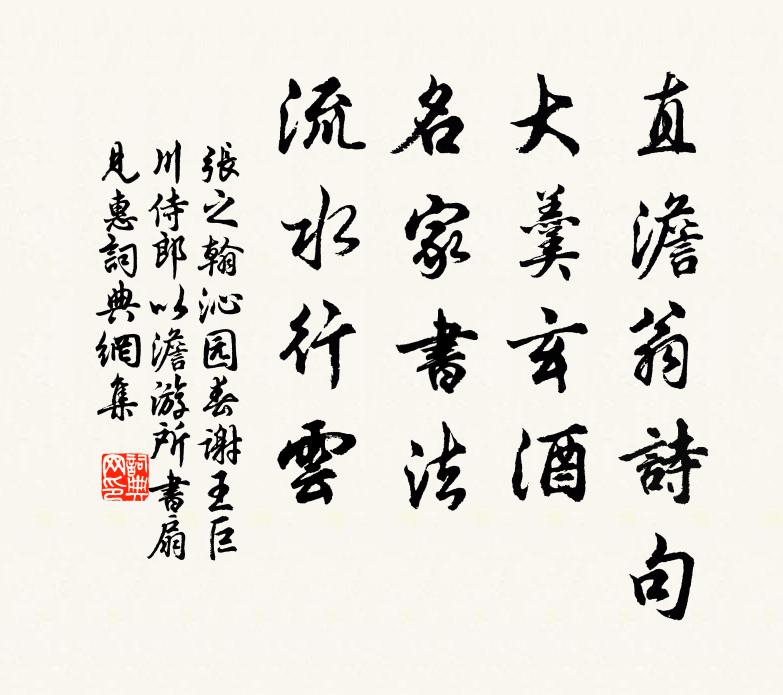 直澹翁詩句
大羹玄酒
名家書法
流水行雲
張之翰沁园春謝王巨
川侍郎以澹游所書扇
見惠詞典網集
詞典网印